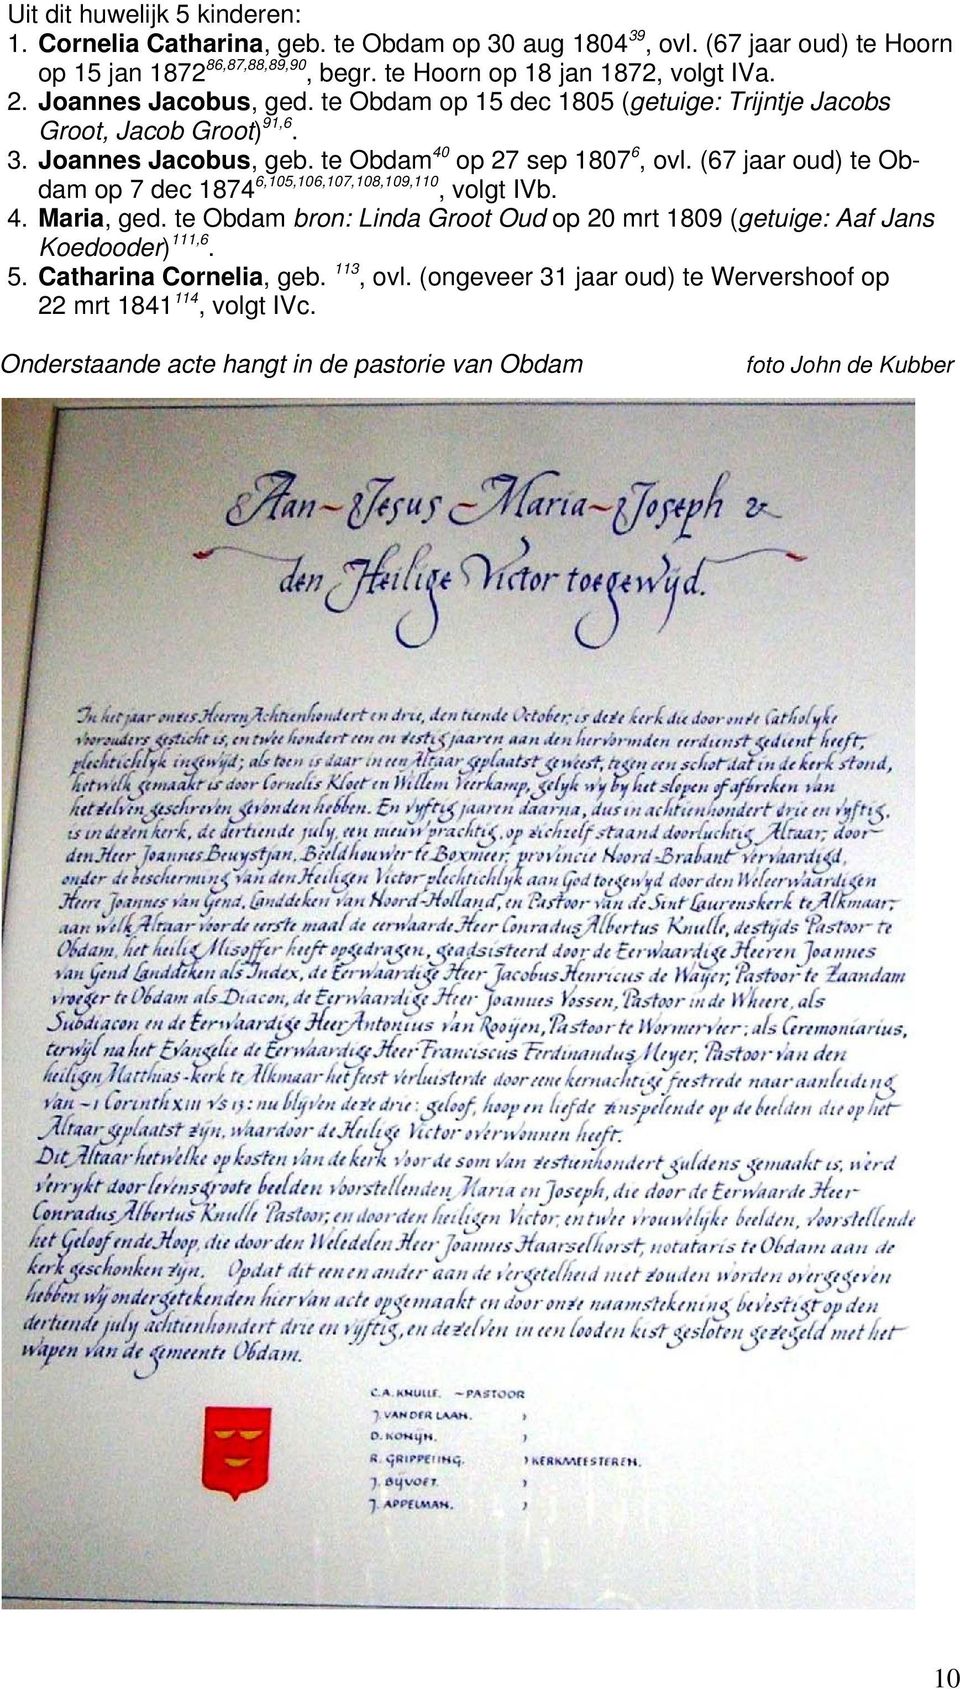 Uit dit huwelijk 5 kinderen:
1. Cornelia Catharina, geb. te Obdam op 30 aug 1804 39, ovl. (67 jaar oud) te Hoorn
op 15 jan 1872 86,87,88,89,90, begr. te Hoorn op 18 jan 1872, volgt IVa.
2. Joannes Jacobus, ged. te Obdam op 15 dec 1805 (getuige: Trijntje Jacobs
Groot, Jacob Groot) 91,6.
3. Joannes Jacobus, geb. te Obdam 40 op 27 sep 1807 6, ovl. (67 jaar oud) te Ob-
dam op 7 dec 1874 6,105,106,107,108,109,110, volgt IVb.
4. Maria, ged. te Obdam bron: Linda Groot Oud op 20 mrt 1809 (getuige: Aaf Jans
Koedooder) 111,6.
5. Catharina Cornelia, geb. 113, ovl. (ongeveer 31 jaar oud) te Wervershoof op
22 mrt 1841 114, volgt IVc.
Onderstaande acte hangt in de pastorie van Obdam foto John de Kubber
Aan ~ Jesus ~ Maria ~ Joseph &
den Heilige Victor toegewijd.
In het jaar onzes Heeren Achtienhondert en drie, den tiende October, is deze kerk die door onze Catholyke
voorouders gesticht is, en twee hondert een en zestig jaaren aan den hervormden eerdienst gedient heeft,
plechtichlyk ingewijd; als toen is daar in een Altaar geplaatst geweest, tegen een schot dat in de kerk stond,
hetwelk gemaakt is door Cornelis Kloet en Willem Veerkamp, gelyk wy by het slopen of afbreken van
hetzelven geschreven gevonden hebben. En vyftig jaaren daarna, dus in achtienhondert drie en vyftig,
is in dezen kerk, de dertiende july, een nieuw prachtig, op zichzelf staand doorluchtig Altaar, door
den Heer Joannes Beuystjan, Bieldhouwer te Boxmeer, provincie Noord-Brabant vervaardigd,
onder de bescherming van den Heiligen Victor plechtichlyk aan God toegewyd door den Weleerwaardigen
Heere Joannes van Gend, Landdeken van Noord-Holland, en Pastoor van de Sint Laurenskerk te Alkmaar,
aan welk Altaar voor de eerste maal de eerwaarde Heer Conradus Albertus Knulle, destyds Pastoor te
Obdam, het heilig Misoffer heeft opgedragen, geadsisteerd door de Eerwaardige Heeren Joannes
van Gend Landdeken als Index, de Eerwaardige Heer Jacobus Henricus de Wayer, Pastoor te Zaandam
vroeger te Obdam als Diacon, de Eerwaardige Heer Joannes Vossen, Pastoor in de Wheere, als
Subdiacon en de Eerwaardige Heer Antonius van Rooijen, Pastoor te Wormerveer; als Ceremoniarius,
terwyl na het Evangelie de Eerwaardige Heer Franciscus Ferdinandus Meyer, Pastoor van den
heiligen Matthias-kerk te Alkmaar het feest verluisterde door eene kernachtige feestrede naar aanleiding
van ~ 1 Corinth XIII vs 13: nu blijven deze drie: geloof, hoop en liefde zinspelende op de beelden die op het
Altaar geplaatst zijn, waardoor de Heilige Victor overwonnen heeft.
Dit Altaar hetwelke op kosten van de kerk voor de som van zestienhondert guldens gemaakt is, werd
verrykt door levensgroote beelden voorstellenden Maria en Joseph, die door de Eerwaarde Heer
Conradus Albertus Knulle Pastoor, en door den heiligen Victor, en twee vrouwelijke beelden, voorstellende
het Geloof en de Hoop, die door den Weledelen Heer Joannes Haarselhorst, notataris te Obdam aan de
kerk geschonken zijn. Opdat dit een en ander aan de vergetelheid niet zouden worden overgegeven
hebben wij ondergetekenden hiervan acte opgemaakt en door onze naamstekening bevestigt op den
dertiende july achtienhondert drie en vijftig, en dezelven in een looden kist gesloten gezegeld met het
wapen van de gemeente Obdam.
C.A. KNULLE. ~ PASTOOR
J. VAN DER LAAN. )
D. KONIJN. )
R. GRIPPELING. ) KERKMEESTEREN.
J. BIJVOET. )
J. APPELMAN. )
10